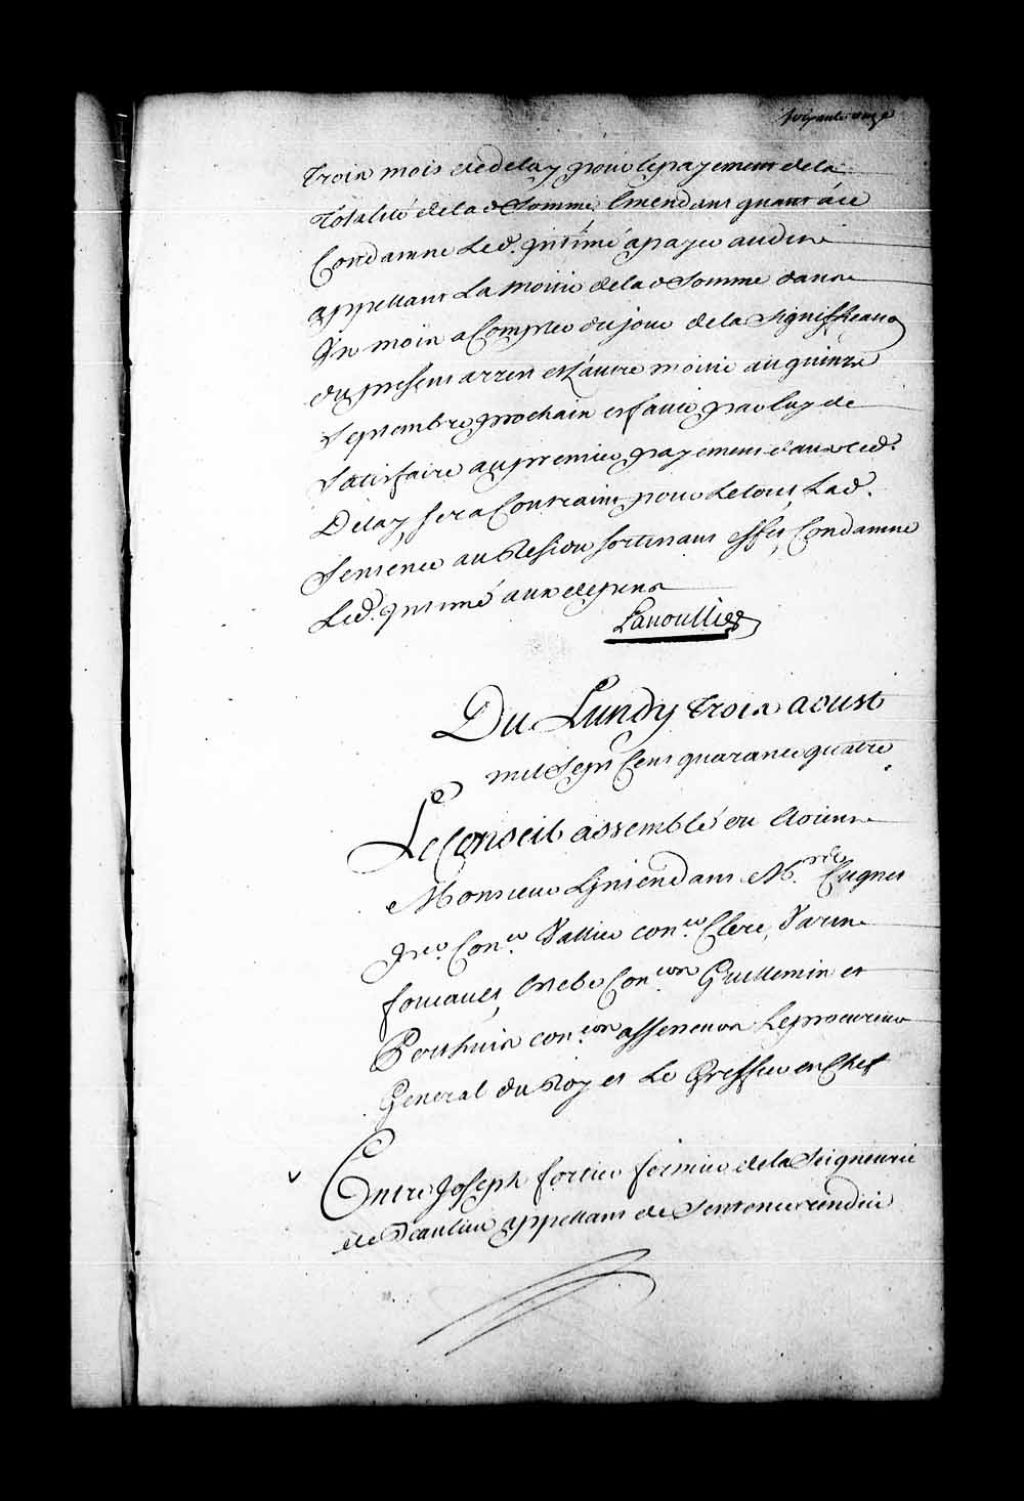 soixante onze
Trois mois de delay pour le payement de la
Totalité de la d. Somme Emendant quant à ce
Condamne Led. Intimé a payer audit
appellant La moitié de la d. Somme dans
Un mois a Compter du jour de la Signiffication
du present arrest et L'autre moitié au quinze
Septembre prochain et faute par luy de
Satisfaire au premier payement dans led.
Delay, sera Contraint pour Le tout, Lad.
Sentence au Residu sortissant effet, Condamne
Led. Intimé aux depens
Lanoullier
Du Lundy trois aoust
mil Sept Cent quarante quatre
Le Conseil assemblé ou Etoient
Monsieur L'Intendant Mrs. de Cugnet
Pr. Coner. Vallier coner. Clerc, Varin
foucault, Estebe Coners Guillemin et
Perthuis coners assesseurs Le procureur
General du Roy et Le Greffier en Chef
v Entre Joseph fortier fermier de la Seigneurie
de Beaulieu appellant de Sentence rendüe